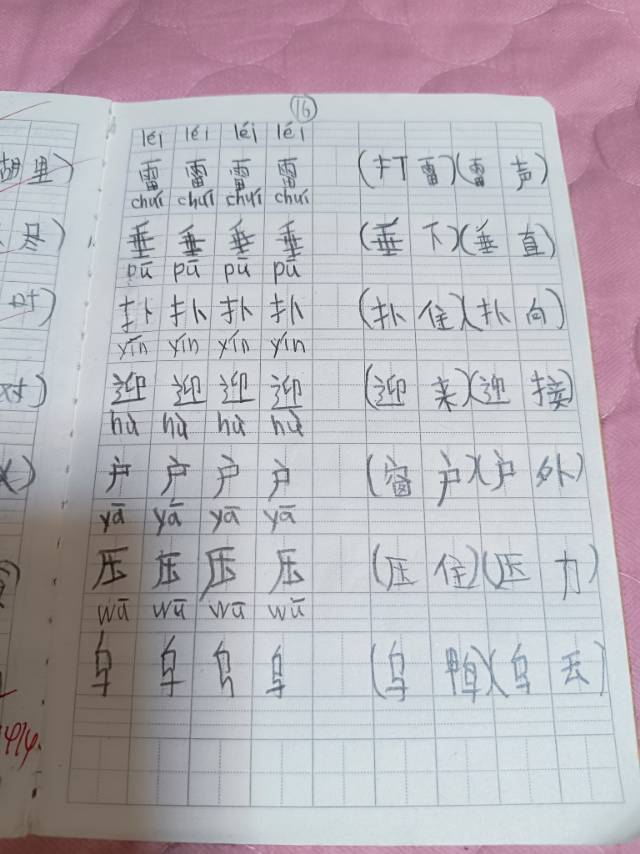 16
léi léi léi léi
雷 雷 雷 雷 (打 雷)(雷 声)
chuí chuí chuí chuí
垂 垂 垂 垂 (垂 下)(垂 直)
pū pū pū pū
扑 扑 扑 扑 (扑 住)(扑 向)
yín yín yín yín
迎 迎 迎 迎 (迎 来)(迎 接)
hù hù hù hù
户 户 户 户 (窗 户)(户 外)
yā yā yā yā
压 压 压 压 (压 住)(压 力)
wū wū wū wū
乌 乌 乌 乌 (乌 鸭)(乌 云)
胡 里)
尽)
对)